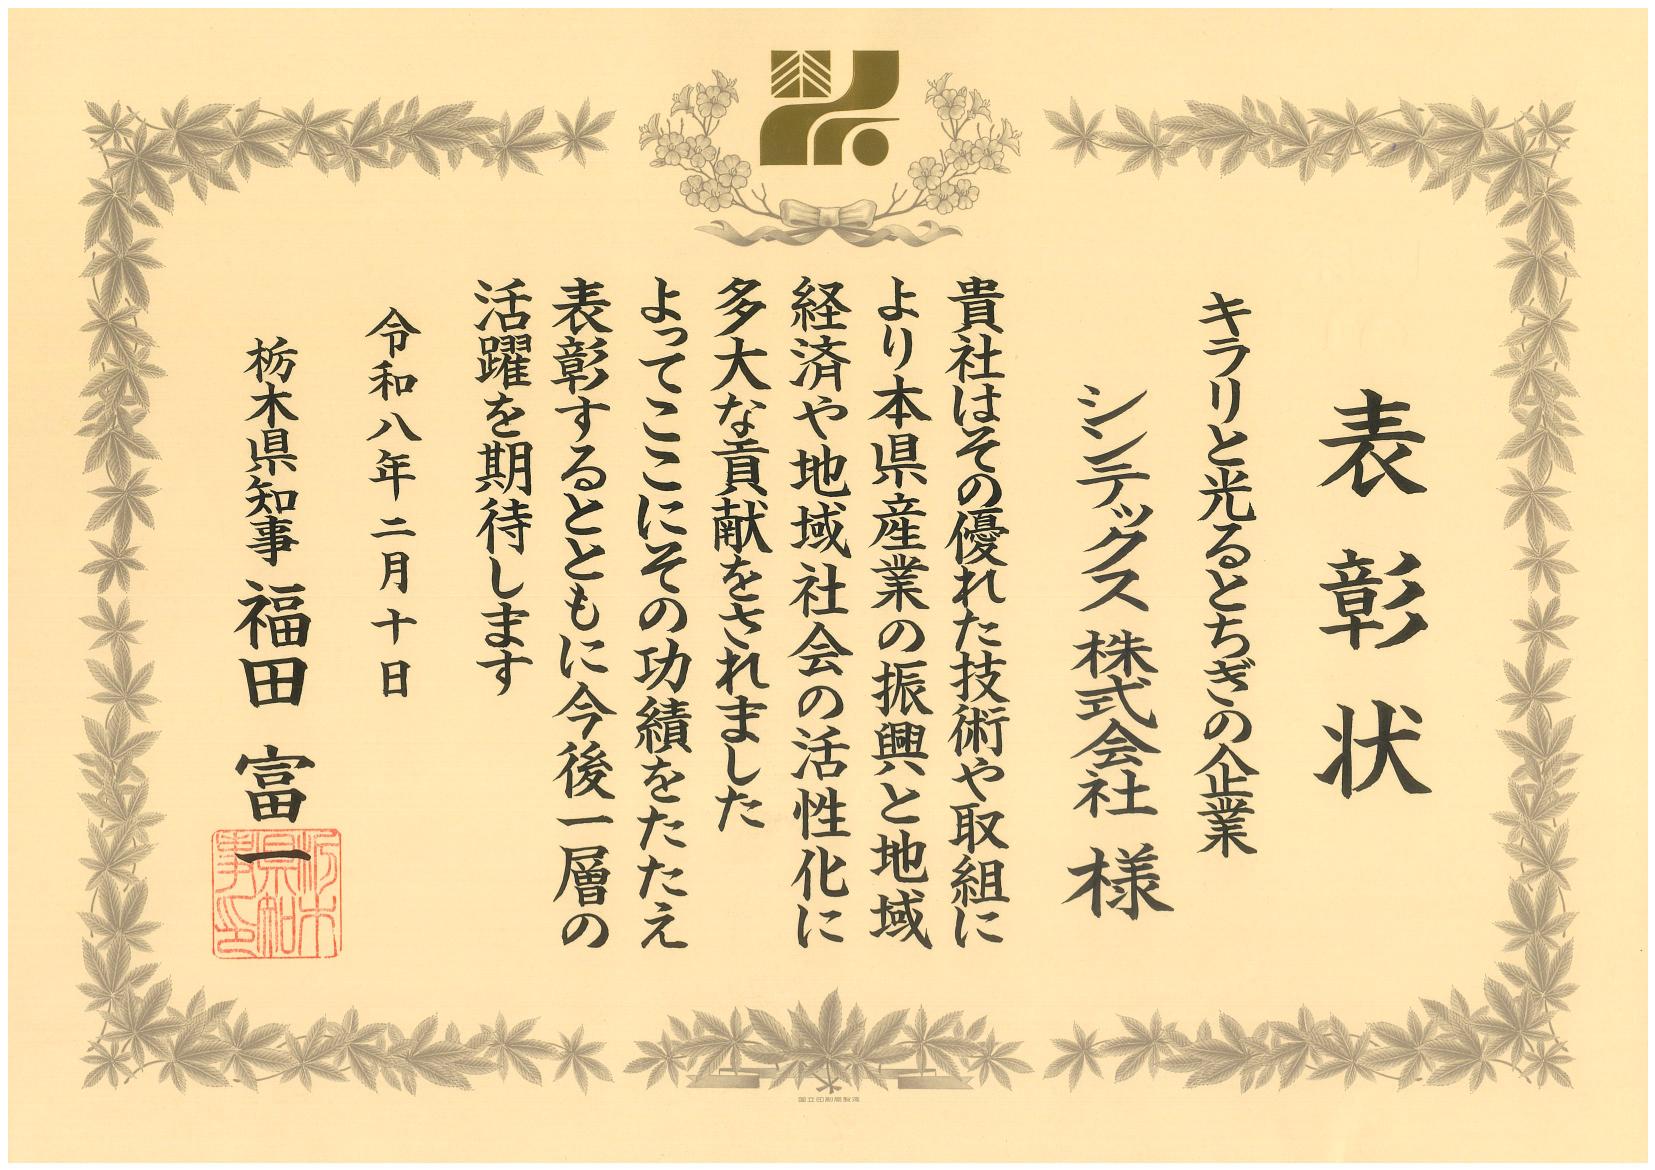 表彰状
キラリと光るとちぎの企業
シンテックス株式会社 様
貴社はその優れた技術や取組に
より本県産業の振興と地域
経済や地域社会の活性化に
多大な貢献をされました
よってここにその功績をたたえ
表彰するとともに今後一層の
活躍を期待します
令和八年二月十日
栃木県知事 福田 富一
栃木県知事之印
国立印刷局製造